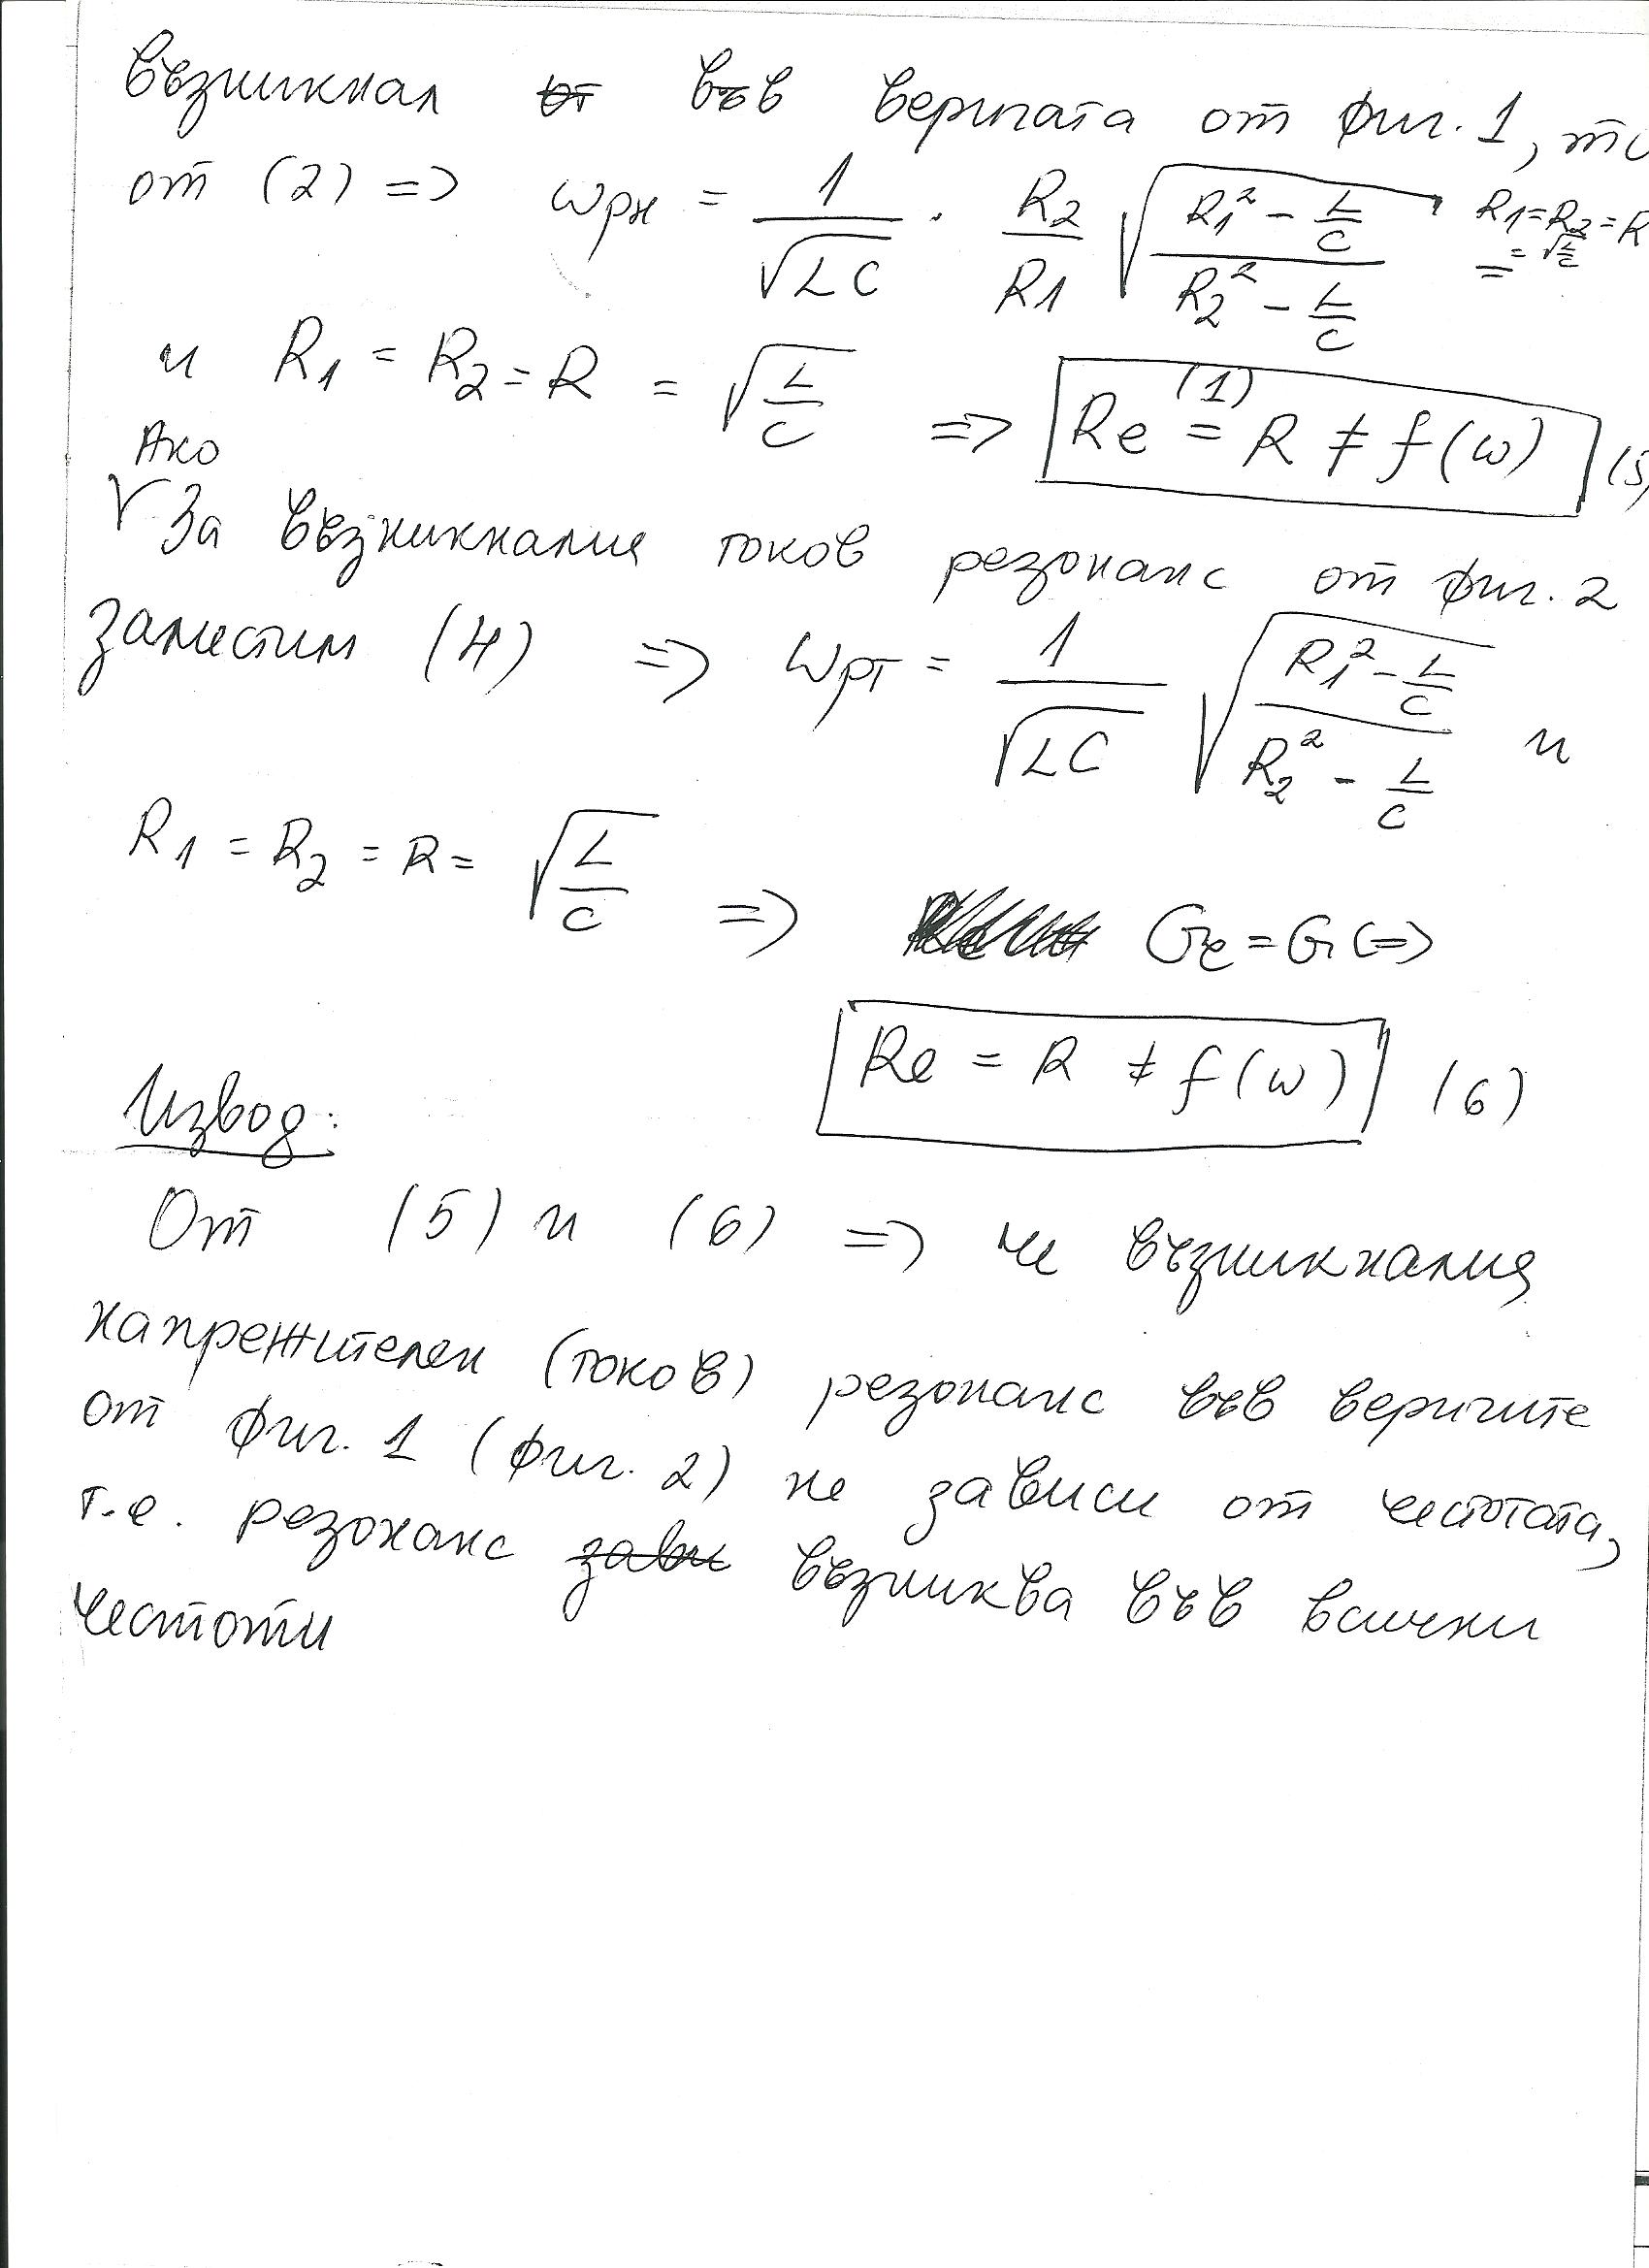 възникнал от във веригата от фиг. 1, то
от (2) => ωрн = 1/√LC · R2/R1 √((R1² - L/C)/(R2² - L/C)) = R1=R2=R = √L/C
и R1 = R2 = R = √L/C => Re (1) = R ≠ f(ω) (5)
Ако
√ За възникналия токов резонанс от фиг. 2
заместим (4) => ωрт = 1/√LC √((R1² - L/C)/(R2² - L/C)) и
R1 = R2 = R = √L/C => Ge = G <=>
Re = R ≠ f(ω) (6)
Извод:
От (5) и (6) => че възникналия
напрежителен (токов) резонанс във веригите
от фиг. 1 (фиг. 2) не зависи от честотата,
т.е. резонанс зави възниква във всички
честоти